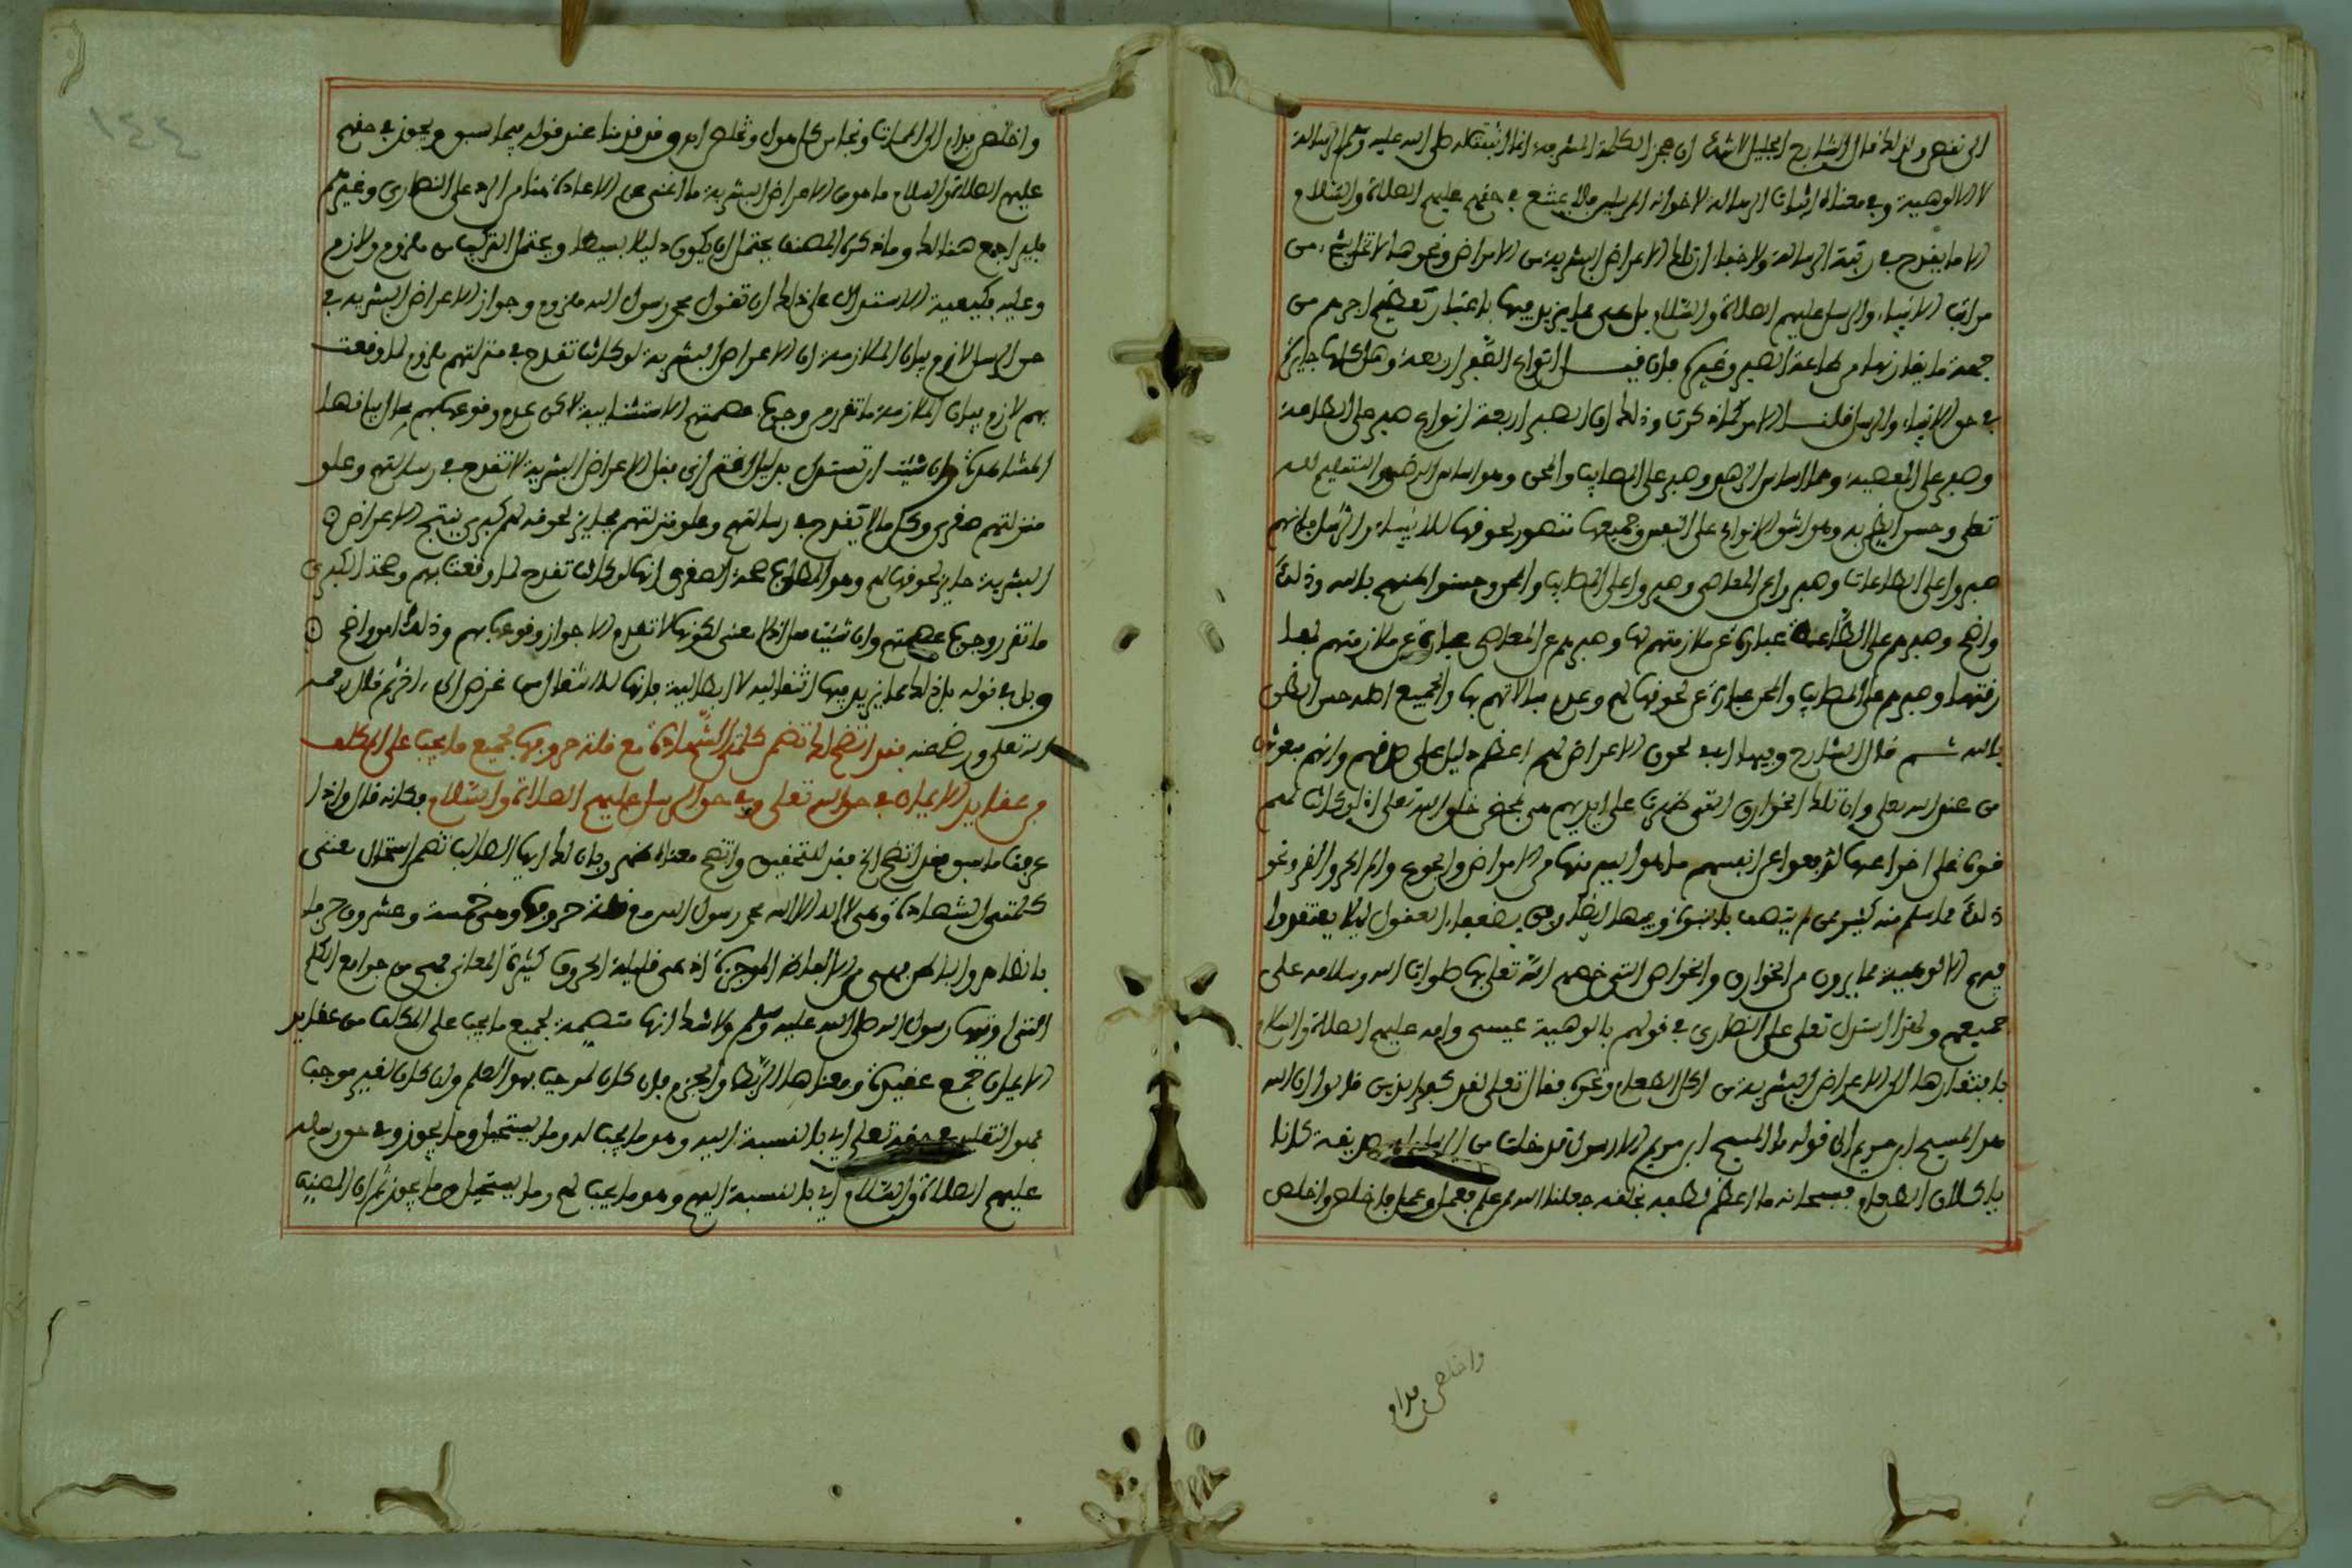 الى نقص ولذلك قال الشارح الجليل لا شك ان عجز الكلمة المشرفة انما اثبتت له صلى الله عليه وسلم الرسالة
لا الالوهية وفي معناه اثبات الرسالة لاخوانه المرسلين فلا يمتنع في حقهم عليهم الصلاة والسلام
الا ما يقدح في رتبة الرسالة ولا خفاء ان تلك الاعراض البشرية من الامراض ونحوها لا تخل بشيء من
مراتب الانبياء والرسل عليهم الصلاة والسلام بل هي مما يزيد فيها باعتبار تعظيم اجرهم من
جهة ما يقارنها من طاعة الصبر وغيره فان قيل انواع الصبر اربعة وهل كلها جائزة
في حق الانبياء والرسل قلنا الامر كما ذكرت وذلك ان الصبر اربعة انواع صبر على الطاعة
وصبر على المعصية وهما اساس الزهد وصبر على المصايب والمحن وهو اساس الرضى والتسليم لله
تعلى وحسن الظن به وهو اشق الانواع على النفس وجميعها يتصور لحوقها للانبياء والرسل فانهم
صبروا على الطاعات وصبروا عن المعاصي وصبروا على المصايب والمحن وحسنوا ظنهم بالله وذلك
واضح وصبرهم على الطاعة عبارة عن ملازمتهم لها وصبرهم عن المعاصي عبارة عن ملازمتهم لمفا
رقتها وصبرهم على المصايب والمحن عبارة عن لحوقها لهم وعدم مبالاتهم بها والجميع اصله حسن الظن
بالله ثم قال الشارح وفيها ايضا لحوق الاعراض لهم اعظم دليل على صدقهم وانهم مبعوثون
من عند الله تعلى وان تلك الخوارق التي ظهرت على ايديهم هي بمحض خلق الله تعلى اذ لو كانت لهم
قوة على اختراعها لدفعوا عن انفسهم ما هو ايسر منها من الامراض والجوع والم الحر والقر ونحو
ذلك مما سلم منه كثير ممن لم يتصف بالنبوة وفيها ايضا رفق بضعفاء العقول ليلا يعتقدوا
فيهم الالوهية مما يرون من الخوارق والخواص التي خصهم الله تعلى بها صلوات الله وسلامه على
جميعهم ولهذا استدل تعلى على النصارى في قولهم بالوهية عيسى وامه عليهم الصلاة والسلام
بافتقارهما الى الاعراض البشرية من اكل الطعام ونحوه فقال تعلى لقد كفر الذين قالوا ان الله
هو المسيح ابن مريم الى قوله ما المسيح ابن مريم الا رسول قد خلت من قبله الرسل وامه صديقة كانا
ياكلان الطعام فسبحانه ما اعظم لطفه بخلقه جعلنا الله ممن علم فعمل وعمل فاخلص واخلص
واخلص فدام
واخلص فدام الى الممات ونجا من كل هول وتخلص اه وقد قدمنا عند قوله فيما سبق ويجوز في حقهم
عليهم الصلاة والسلام ما هو من الاعراض البشرية ما اغنى عن الاعادة هنا من الرد على النصارى وغيرهم
فليراجع هنالك وما ذكره المصنف يحتمل ان يكون دليلا بسيطا ويحتمل التركيب من ملزوم ولازم
وعليه فكيفية الاستدلال على ذلك ان تقول محمد رسول الله ملزوم وجواز الاعراض البشرية في
حق الرسل لازم بيان الملازمة ان الاعراض البشرية لو كانت تقدح في منزلتهم ملزوم لما وقعت
بهم لازم بيان الملازمة ما تقرر من وجوب عصمتهم الاستثنائية لاكن عدم وقوعها بهم باطل بيانها
المشاهدة وان شئت ان تستدل بدليل اقتراني فقل الاعراض البشرية لا تقدح في رسالتهم وعلو
منزلتهم صغرى وكل ما لا يقدح في رسالتهم وعلو منزلتهم فجايز لحوقه لهم كبرى ينتج الاعراض
البشرية جايز لحوقها لهم وهو المطلوب صحة الصغرى انها لو كانت تقدح لما وقعت بهم وصحة الكبرى
ما تقرر وجوب عصمتهم وان شئت صدق المعنى لكونها لا تقدح الا جواز وقوعها بهم وذلك امر واضح
وبل في قوله بل ذلك مما يزيد فيها انتقالية لا ابطالية فانها للانتقال من غرض الى اخر ثم قال رحمه
الله تعلى ورضي عنه فقد اتضح لك تضمن كلمتي الشهادة مع قلة حروفها لجميع ما يجب على المكلف
من عقايد الايمان في حق الله تعلى وفي حق الرسل عليهم الصلاة والسلام فكانه قال واذا
عرفت ما سبق فقد اتضح الخ فقد للتحقيق واتضح معناه ظهر وبان لك ايها الطالب تضمن اشتمال معنى
كلمتي الشهادة وهي لا اله الا الله محمد رسول الله مع قلة حروفها وهي خمسة وعشرون حرفا
بالظاهر والباطن فهي من الالفاظ الموجزة اذ هي قليلة الحروف كثيرة المعاني فهي من جوامع الكلم
التي اوتيها رسول الله صلى الله عليه وسلم ولا شك انها متضمنة لجميع ما يجب على المكلف من عقايد
الايمان جمع عقيدة ومعناها الربط والجزم فان كان لموجب فهو العلم وان كان لغير موجب
فهو التقليد في حقه تعلى اي بالنسبة اليه وهو ما يجب له وما يستحيل وما يجوز وفي حق رسله
عليهم الصلاة والسلام اي بالنسبة اليهم وهو ما يجب لهم وما يستحيل وما يجوز ثم ان المصنف